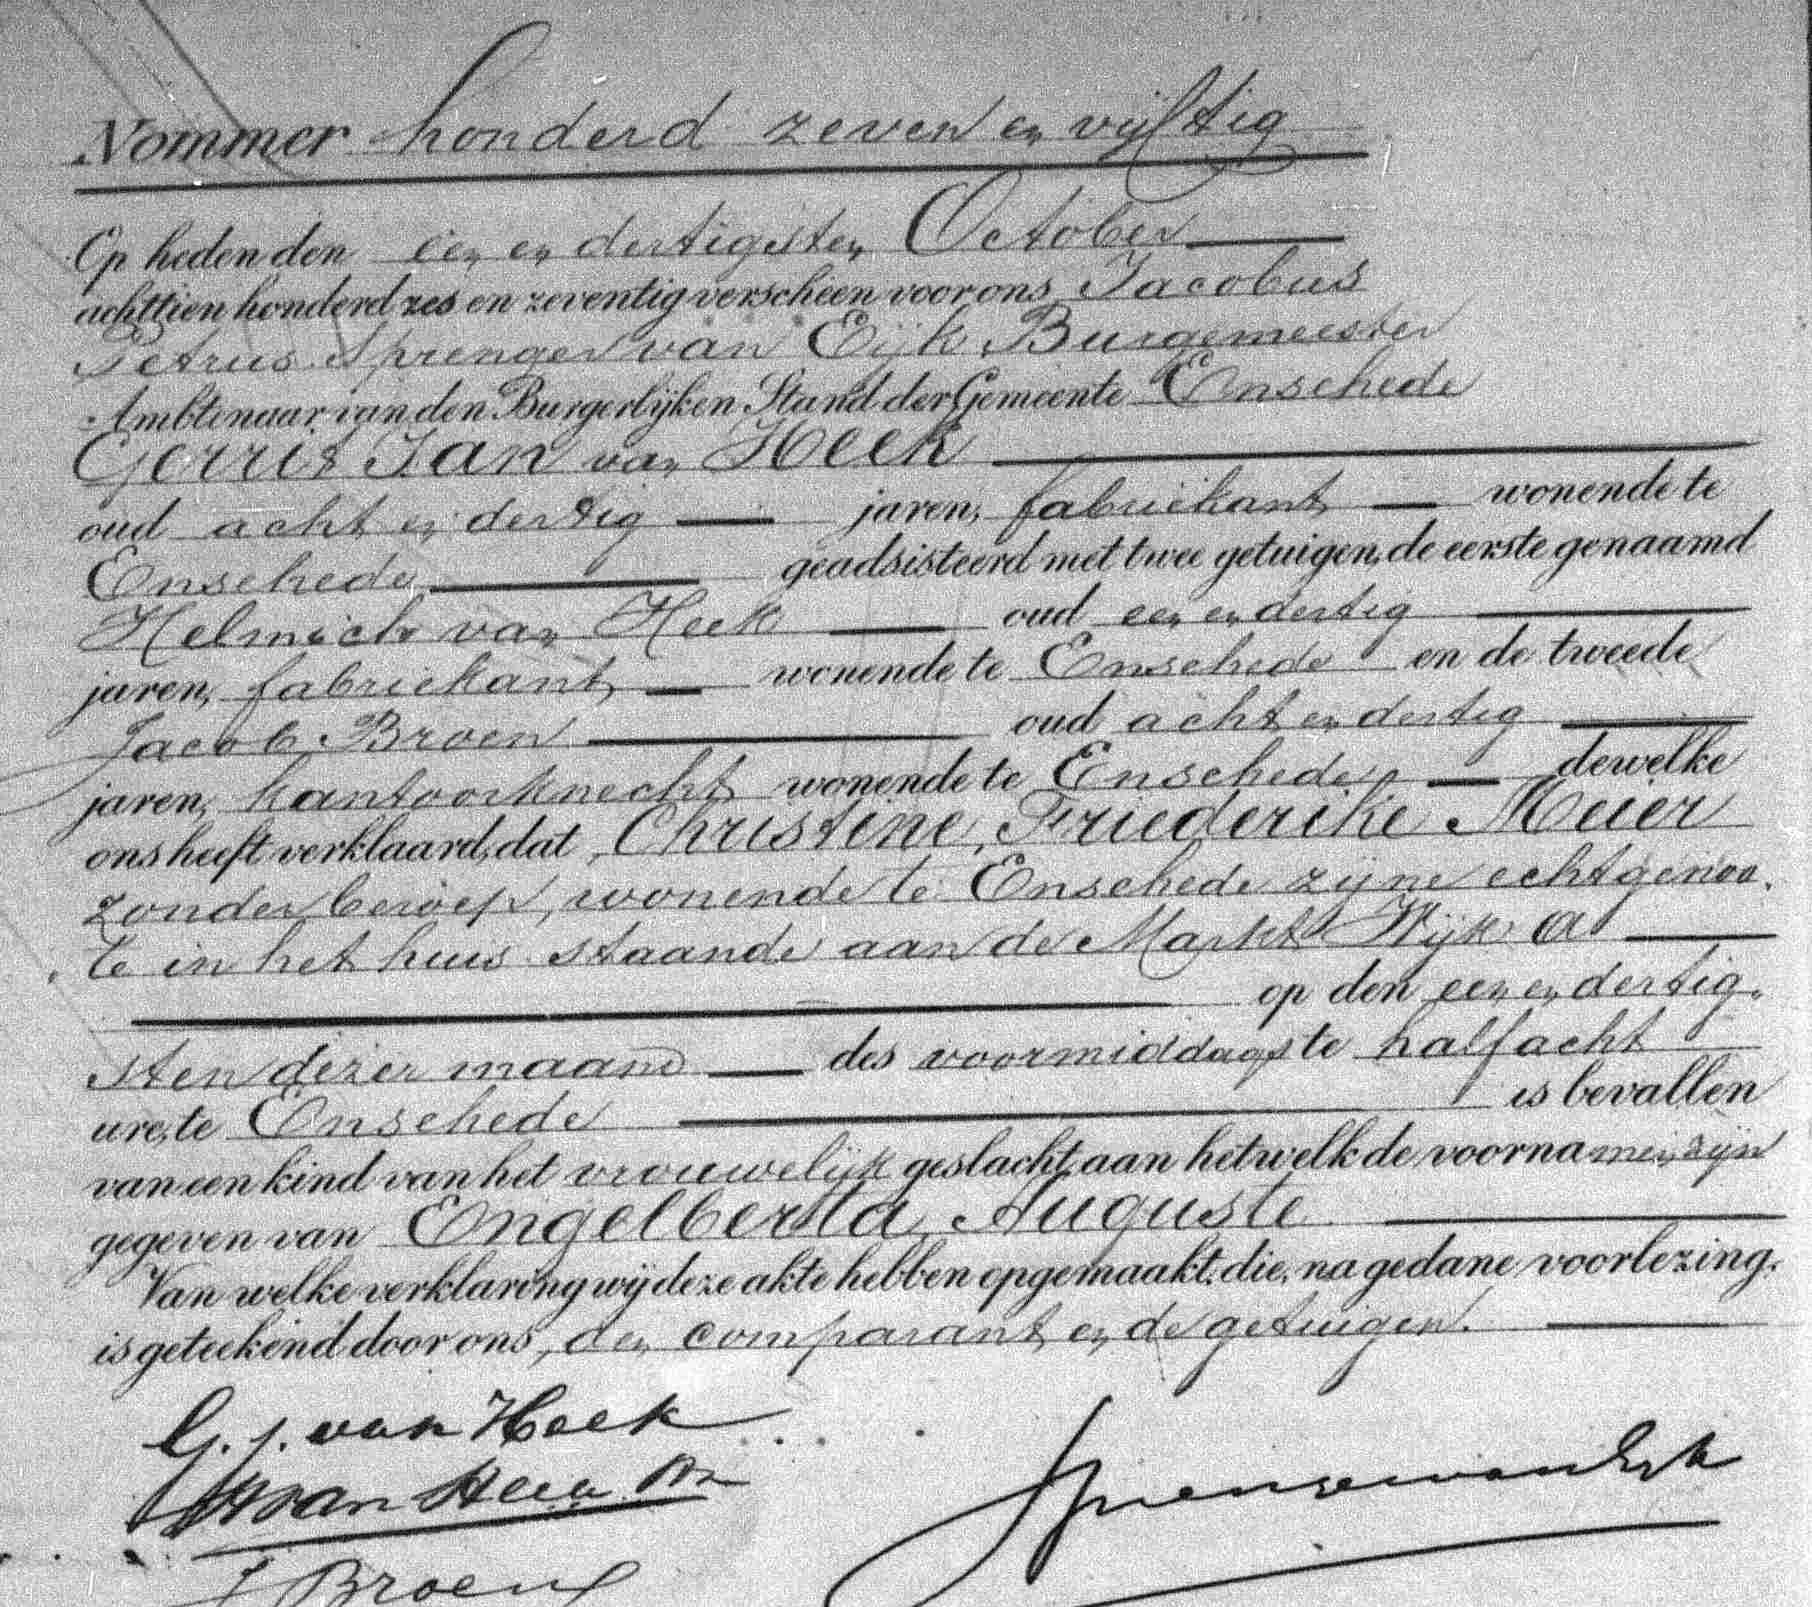 Nommer honderd zeven en vijftig
Op heden den een en dertigsten October
achttien honderd zes en zeventig verscheen voor ons Jacobus
Petrus Sprenger van Eijk Burgemeester
Ambtenaar van den Burgerlijken Stand der Gemeente Enschede
Gerrit Jan van Heek
oud acht en dertig jaren, fabriekant wonende te
Enschede geadsisteerd met twee getuigen, de eerste genaamd
Helmich van Heek oud een en dertig
jaren, fabriekant, wonende te Enschede en de tweede
Jacob Broen oud acht en dertig
jaren, kantoorknecht wonende te Enschede, dewelke
ons heeft verklaard, dat Christine, Friederike Meier
zonder beroep, wonende te Enschede zijne echtgenoo-
te in het huis staande aan de Markt Wijk A
op den een en dertig-
sten dezer maand des voormiddags te half acht
ure, te Enschede is bevallen
van een kind van het vrouwelijk geslacht, aan hetwelk de voornamen zijn
gegeven van Engelberta, Auguste
Van welke verklaring wij deze akte hebben opgemaakt, die, na gedane voorlezing,
is geteekend door ons, den comparant en de getuigen.
G. J. van Heek
van Heek
Sprenger van Eyk
J Broen